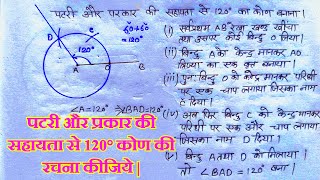 पटरी और परकार की सहायता से 120° का कोण बनाना।
(i) सर्वप्रथम AB रेखा खण्ड खींचा
तथा उसपर कोई बिन्दु O लिया।
(ii) बिन्दु A को केन्द्र मानकर AO
त्रिज्या का एक वृत्त बनाया।
(iii) पुनः बिन्दु O को केन्द्र मानकर परिधि
पर एक चाप लगाया जिसका नाम
C दिया।
(iv) अब फिर बिन्दु C को केन्द्र मानकर
परिधि पर एक और चाप लगाया
जिसका नाम D दिया।
(v) बिन्दु A तथा D को मिलाया।
तो ∠BAD = 120° बना।
D
C
120°
A
O
B
∠A=120°
∠BAD=120°
पटरी और प्रकार की
सहायता से 120° कोण की
रचना कीजिये |